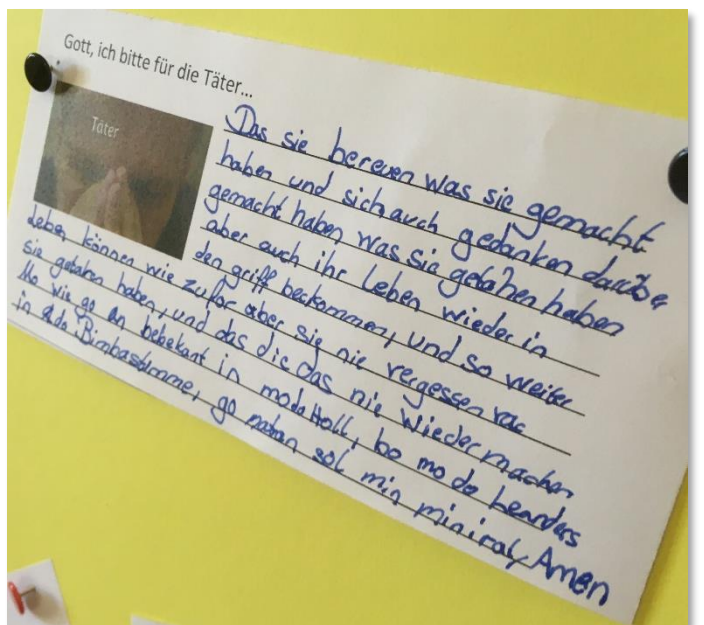 Gott, ich bitte für die Täter...
Täter
Das sie bereuen was sie gemacht
haben und sich auch gedanken darübe
gemacht haben, was sie getahen haben
aber auch ihr Leben wieder in
den griff beckommen, und so weiter
Leben können wie zufor aber sie nie vergessen was
sie getahen haben, und das die das nie wieder machen
Mo vie go en bebekant in mode Holl, bo mo do
in Bimbastimme, go sol min miniral, Amen